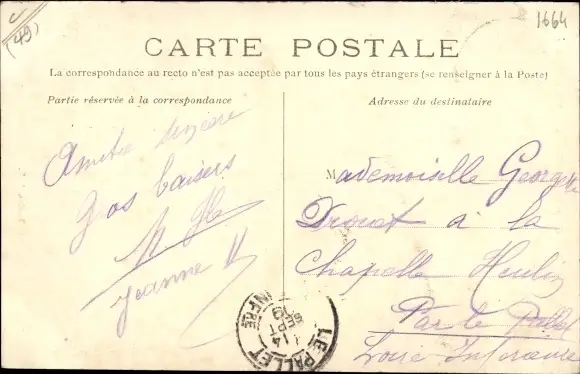 (49)
1664
CARTE POSTALE
La correspondance au recto n'est pas acceptée par tous les pays étrangers (se renseigner à la Poste)
Partie réservée à la correspondance
Adresse du destinataire
Amitié sincère
Gos baisers
Jeanne H
Mademoiselle Georgette
Drouet a la
Chapelle Heulin
Par le Pallet
Loire Inferieure
LE PALLET
INFRE
14